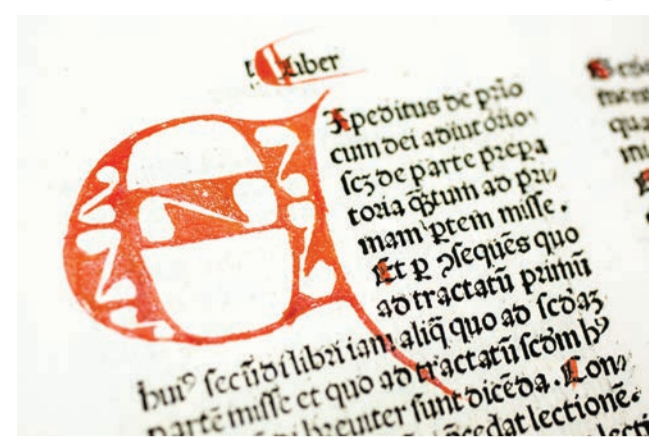 Liber
EXpeditus de pᷓio
cum dei adiutorio
scʒ de parte prepa
toria q̃tum ad pri⸗
mam ꝑtem misse.
Et ꝑ ꝯsequẽs quo
ad tractatũ primũ
huiꝰ secũdi libri iam aliq̃ quo ad scd̓aʒ
partẽ misse et quo ad tractatũ scd̓m hꝰ
breuiter sunt dicẽda. Con⸗
cedat lectionẽ